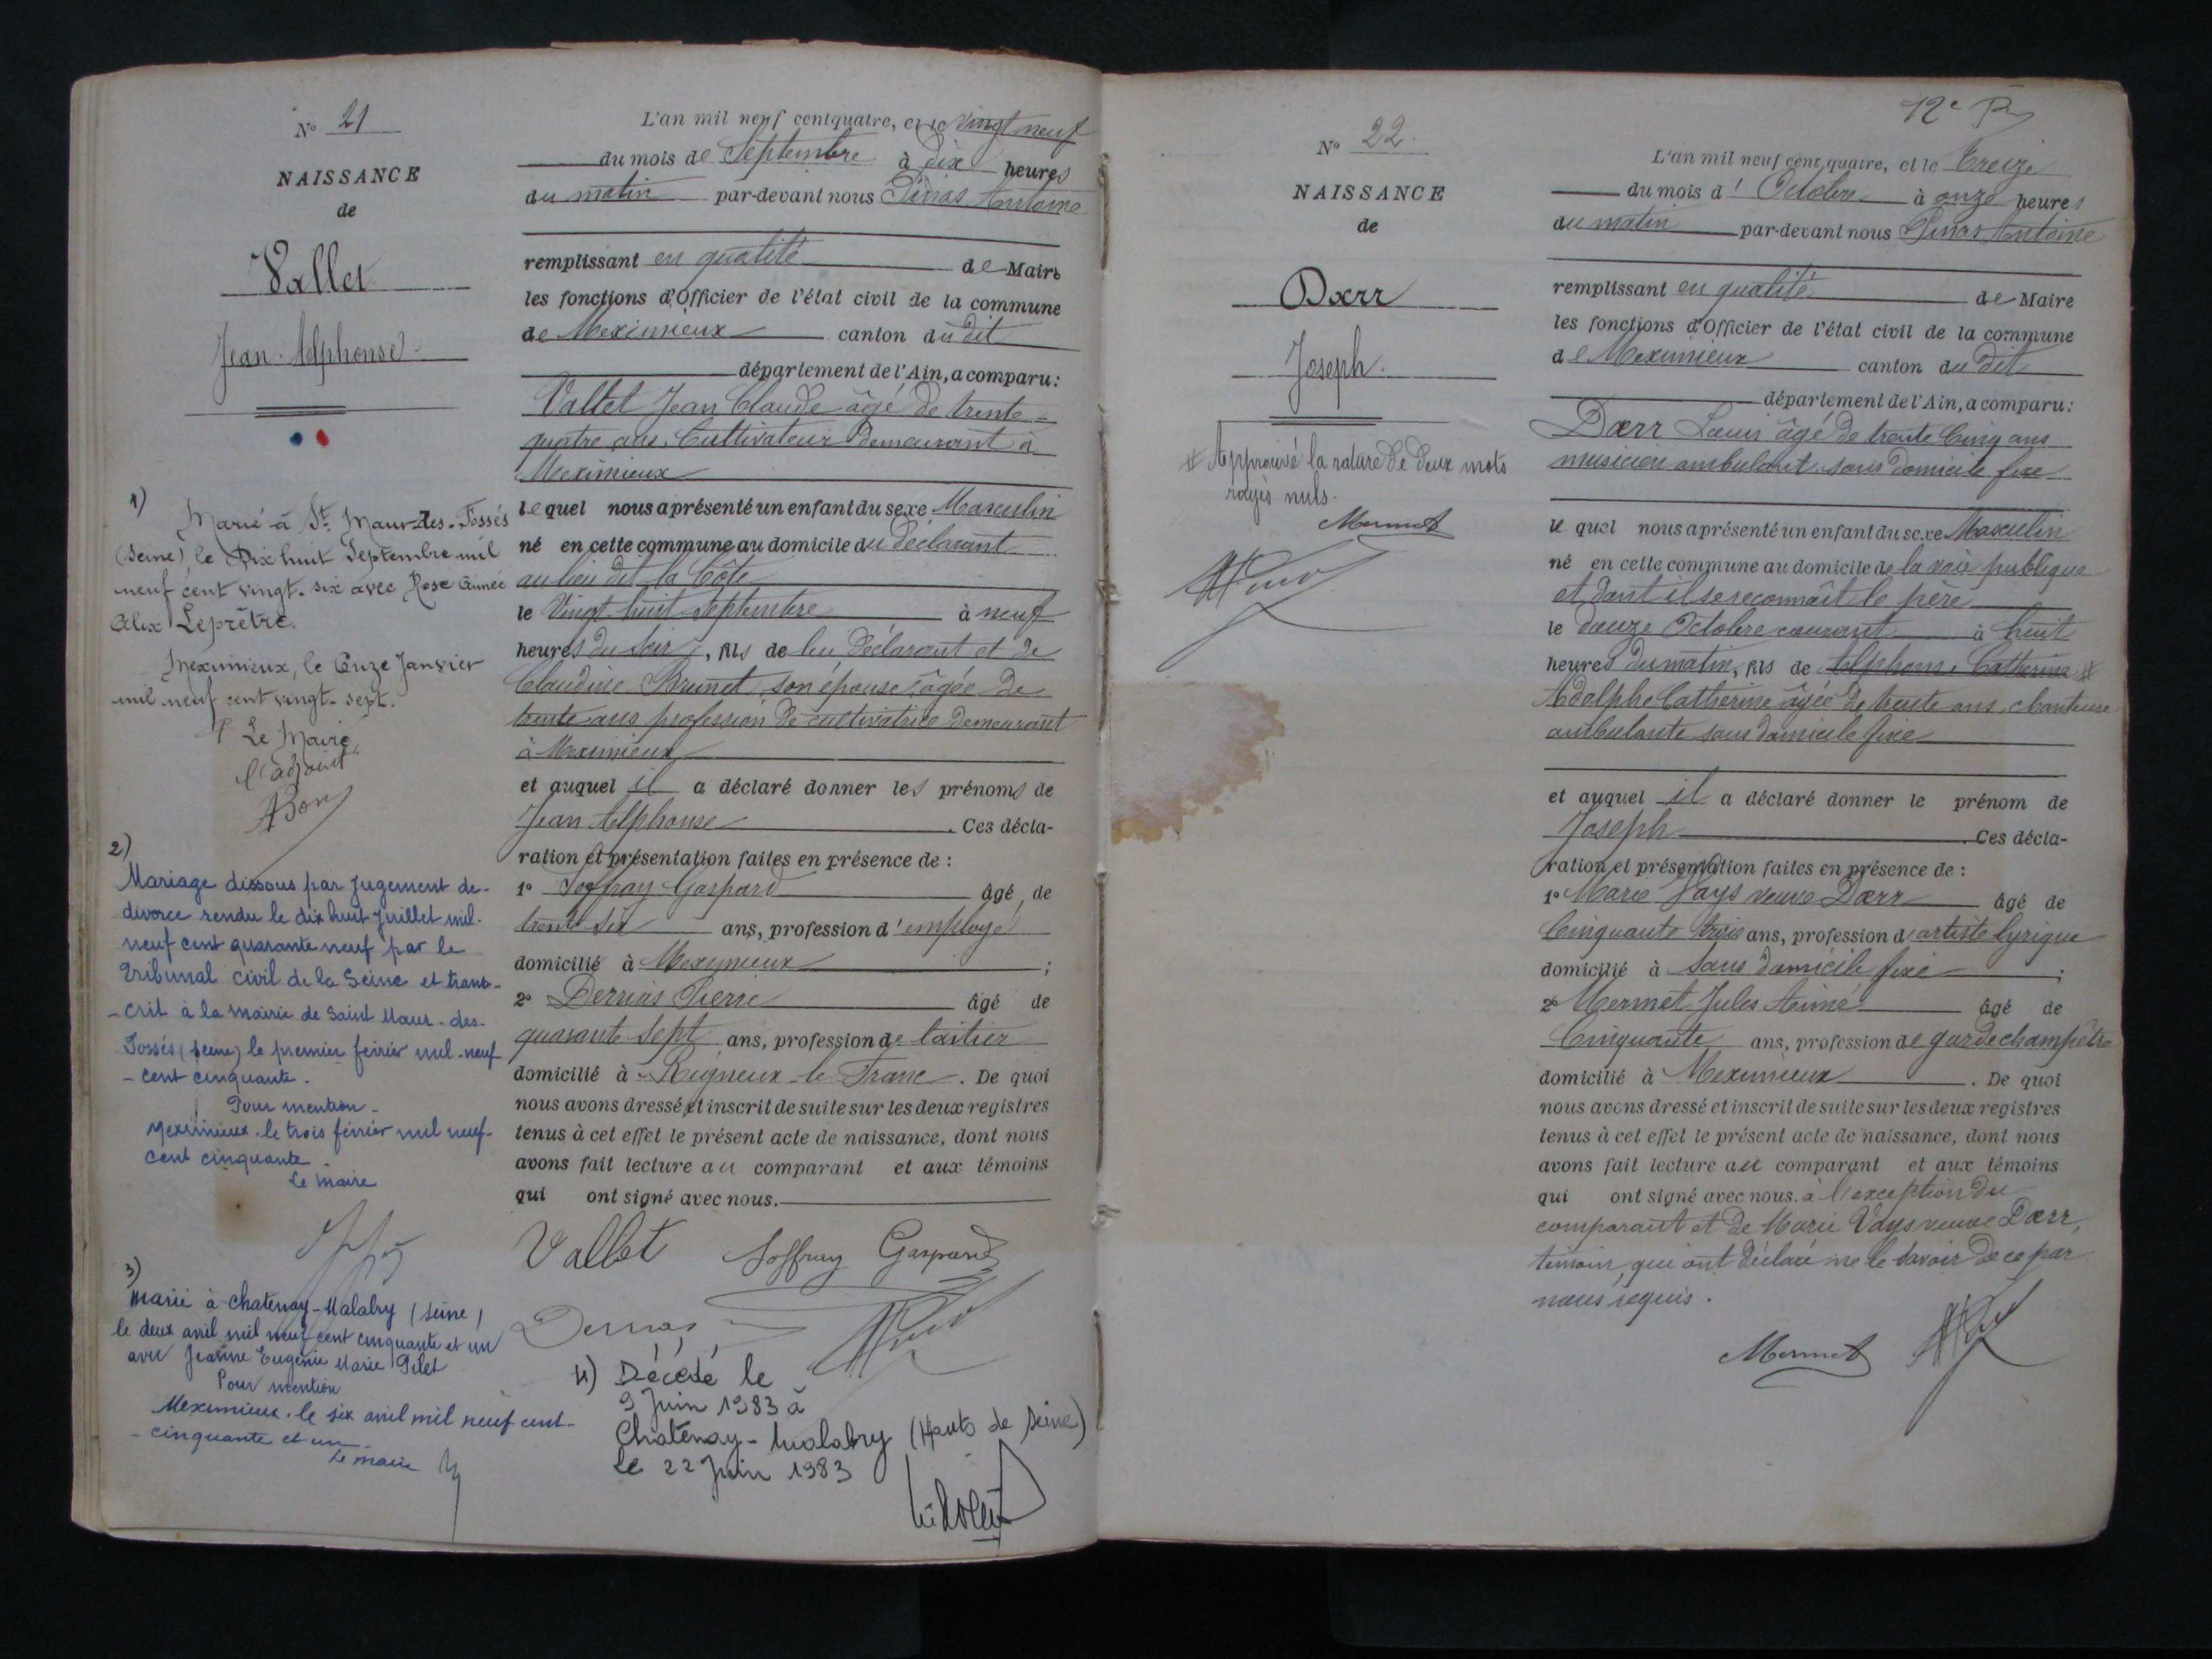 N° 21
NAISSANCE
de
Vallet
Jean Alphonse
1)
Marié à St. Maur-des-Fossés
(Seine), le Dix huit Septembre mil
neuf cent vingt-six avec Rose Aimée
Alix Leprêtre.
Meximieux, le Onze Janvier
mil neuf cent vingt-sept.
Le Maire,
l'adjoint
2)
Mariage dissous par jugement de
divorce rendu le dix huit juillet mil-
neuf cent quarante neuf par le
Tribunal civil de la Seine et trans-
-crit à la mairie de Saint Maur-des-
Fossés (Seine) le premier février mil-neuf
-cent cinquante.
Pour mention-
Meximieux, le trois février mil neuf-
cent cinquante
Le Maire
3)
Marié à Chatenay-Malabry (Seine)
le deux avril mil neuf cent cinquante et un
avec Jeanne Eugénie Marie Pilet
Pour mention
Meximieux, le six avril mil neuf cent-
-cinquante et un
Le maire
L'an mil neuf cent quatre, et le vingt neuf
du mois de Septembre à dix heures
du matin par-devant nous Pinas Antoine
remplissant en qualité de Maire
les fonctions d'Officier de l'état civil de la commune
de Meximieux canton du dit
département de l'Ain, a comparu:
Vallet Jean Claude âgé de trente-
quatre ans, Cultivateur demeurant à
Meximieux
lequel nous a présenté un enfant du sexe Masculin
né en cette commune au domicile du déclarant
au lieu dit la Côte
le Vingt huit Septembre à neuf
heures du soir, fils de lui déclarant et de
Claudine Brunet son épouse âgée de
trente ans profession de cultivatrice demeurant
à Meximieux
et auquel il a déclaré donner les prénoms de
Jean Alphonse. Ces décla-
ration et présentation faites en présence de :
1° Joffray Gaspard âgé de
trente six ans, profession d'employé
domicilié à Meximieux ;
2° Dernias Pierre âgé de
quarante sept ans, profession de laitier
domicilié à Rigneux-le-Franc. De quoi
nous avons dressé et inscrit de suite sur les deux registres
tenus à cet effet le présent acte de naissance, dont nous
avons fait lecture au comparant et aux témoins
qui ont signé avec nous.
Vallet Joffray Gaspard
4) Décédé le
9 Juin 1983 à
Chatenay-Malabry (Hauts de Seine)
le 22 Juin 1983
N° 22
NAISSANCE
de
Dœrr
Joseph
# Approuvé la rature de deux mots
rayés nuls.
Mermet
L'an mil neuf cent quatre, et le Treize
du mois d'Octobre à onze heures
du matin par-devant nous Pinas Antoine
remplissant en qualité de Maire
les fonctions d'Officier de l'état civil de la commune
de Meximieux canton du dit
département de l'Ain, a comparu:
Dœrr Louis âgé de trente Cinq ans
musicien ambulant sans domicile fixe
lequel nous a présenté un enfant du sexe Masculin
né en cette commune au domicile de la voie publique
et dont il se reconnaît le père
le douze Octobre courant à huit
heures du matin, fils de Alphonse Catherine #
Adolphe Catherine âgée de trente ans, chanteuse
ambulante sans domicile fixe
et auquel il a déclaré donner le prénom de
Joseph. Ces décla-
ration et présentation faites en présence de :
1° Marie Vays veuve Dœrr âgé de
Cinquante trois ans, profession d'artiste lyrique
domicilié à sans domicile fixe ;
2° Mermet Jules Aimé âgé de
Cinquante ans, profession de garde champêtre
domicilié à Meximieux. De quoi
nous avons dressé et inscrit de suite sur les deux registres
tenus à cet effet le présent acte de naissance, dont nous
avons fait lecture au comparant et aux témoins
qui ont signé avec nous. à l'exception du
comparant et de Marie Vays veuve Dœrr,
témoin, qui ont déclaré ne le savoir de ce par
nous requis.
Mermet